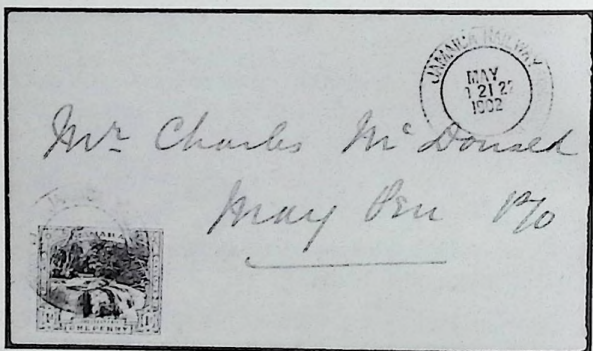 JAMAICA RAILWAY
MAY
21 22
1902
Mr Charles McDonald
May Pen P/O
JAMAICA
ONE PENNY